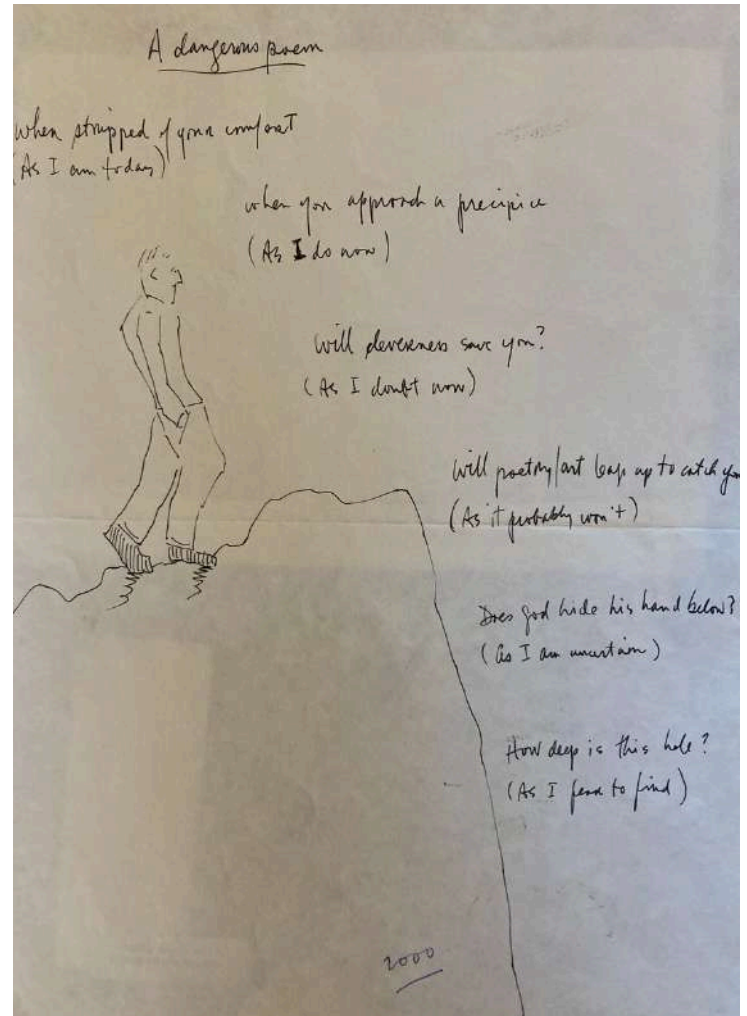 A dangerous poem
when stripped of your comfort
(As I am today)
when you approach a precipice
(As I do now)
Will cleverness save you?
(As I doubt now)
Will poetry/art leap up to catch you
(As it probably won't)
Does god hide his hand below?
(as I am uncertain)
How deep is this hole?
(As I fear to find)
2000